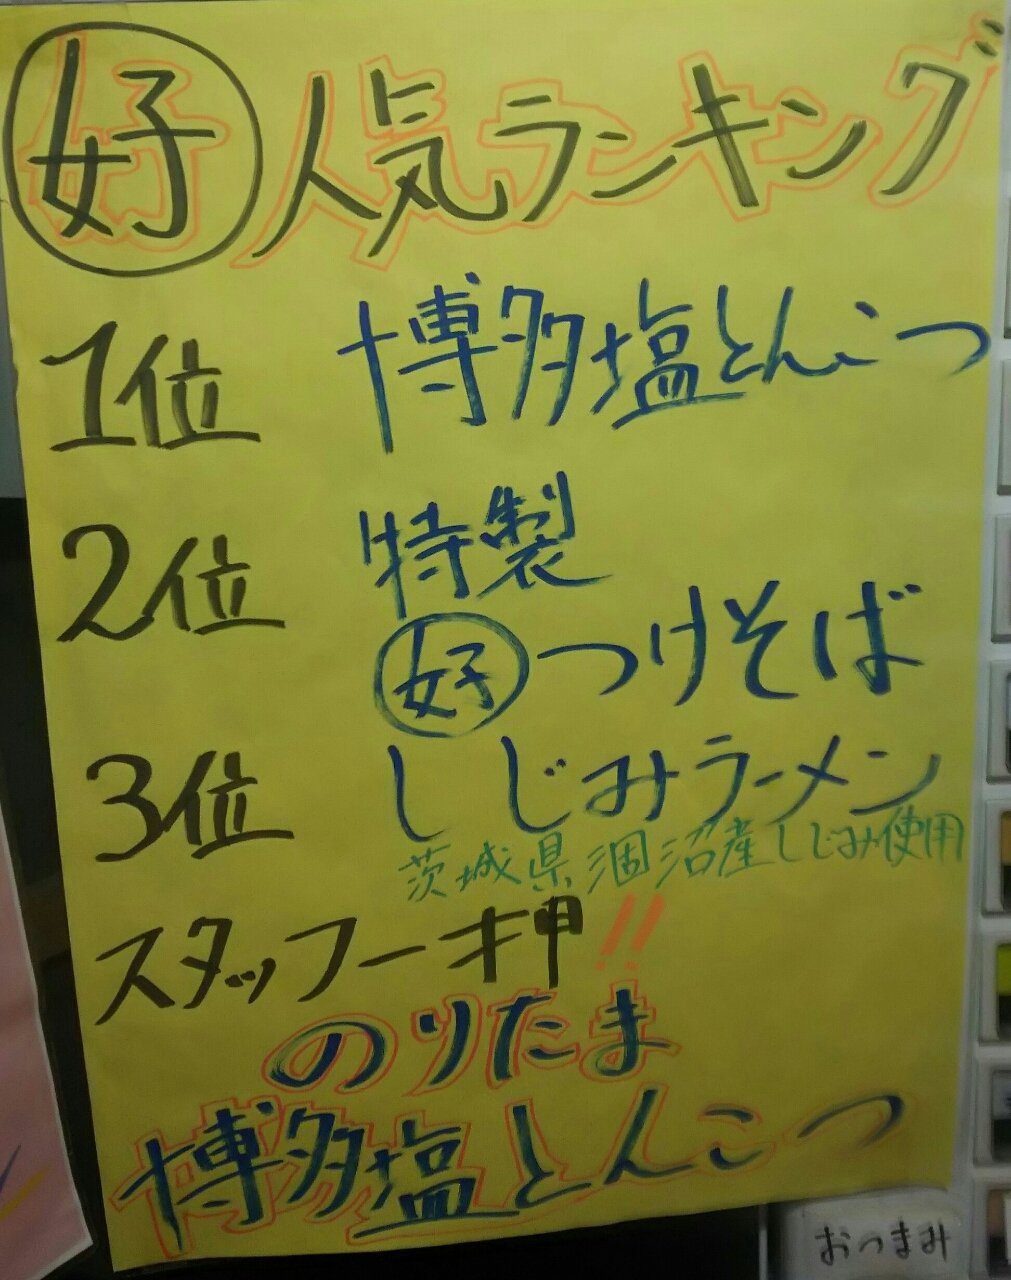 好 人気ランキング
1位 博多塩とんこつ
2位 特製
好 つけそば
3位 しじみラーメン
茨城県涸沼産しじみ使用
スタッフ一押!!
のりたま
博多塩とんこつ
おつまみ